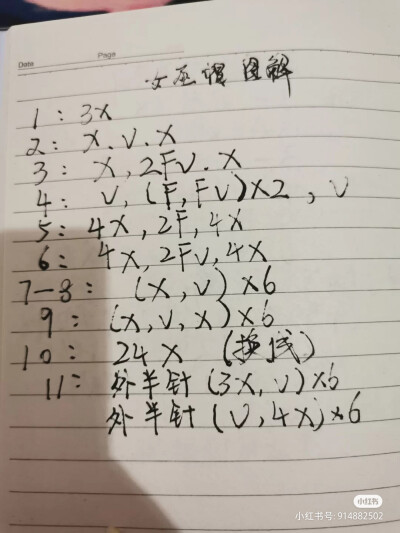 Date
Page
女巫帽 图解
1: 3X
2: X.V.X
3: X, 2FV.X
4: V, (F, FV)×2, V
5: 4X, 2F, 4X
6: 4X, 2FV, 4X
7-8: (X, V)×6
9: (X, V, X)×6
10: 24X (换线)
11: 外半针(3X, V)×6
外半针(V, 4X)×6
小红书
小红书号: 914882502